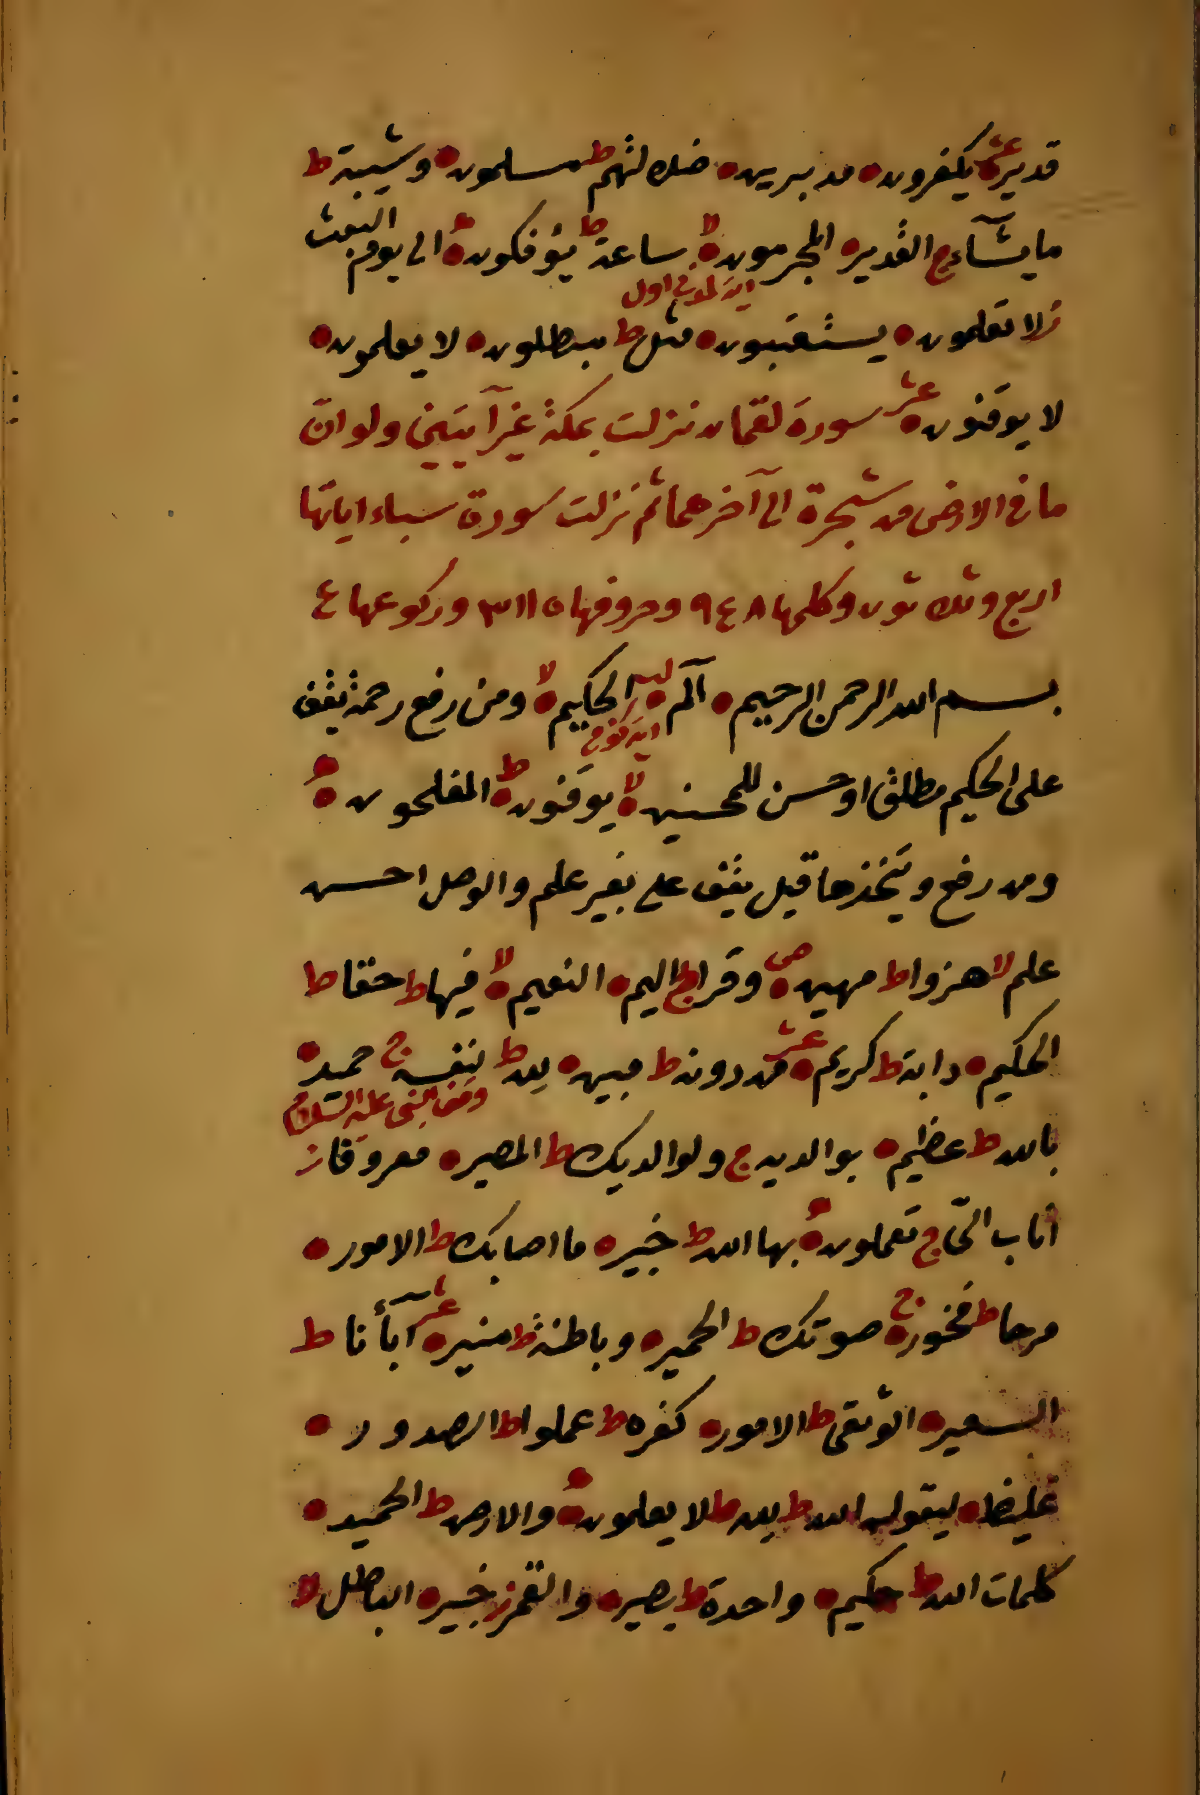 قدير ۰ عشر يكفرون ۰ مدبرين ۰ ضلالتهم ط مسلمون ۰ وشيبة ط
ما يشآء ج القدير ۰ المجرمون ۰ لا ساعة ط يؤفكون ۰ الى يوم البعث
ز لا تعلمون ۰ يستعتبون ۰ مثل ط مبطلون ۰ لا يعلمون ۰
لا يوقنون ۰ عشر سورة لقمان نزلت بمكة غير آيتين ولو ان
ما في الارض من شجرة الى آخرهما ثم نزلت سورة سباء اياتها
اربع وثلاثون وكلمها ٩٤٨ وحروفها ٣١١٥ وركوعها ٤
بسم الله الرحمن الرحيم ۰ آلم ۰ الحكيم ۰ لا ومن رفع رحمة يقف
على الحكيم مطلق او حسن للمحسنين ۰ لا يوقنون ۰ ط المفلحون ۰
ومن رفع ويتخذها قيل يقف على بغير علم والوصل احسن
علم لا هزوا ط مهين ۰ وقرا ج اليم ۰ النعيم ۰ لا فيها ط حقا ط
الحكيم ۰ دابة ط كريم ۰ عشر من دونه ط مبين ۰ لله ط لنفسه ج حميد ۰
وقف النبي عليه السلام
بالله ط عظيم ۰ بوالديه ج ولوالديك ط المصير ۰ معروفا ز
اناب الىّ ج تعملون ۰ بها الله ط خبير ۰ ما اصابك ط الامور ۰
مرحا ط فخور ۰ ج صوتك ط الحمير ۰ وباطنة ط منير ۰ عشر آبأنا ط
السعير ۰ الوثقى ط الامور ۰ كفره ط عملوا ط الصدور ۰
غليظ ۰ ليقولن الله ط لله ط لا يعلمون ۰ والارض ط الحميد ۰
كلمات الله ط حكيم ۰ واحدة ط بصير ۰ والقمر ز خبير ۰ الباطل لا